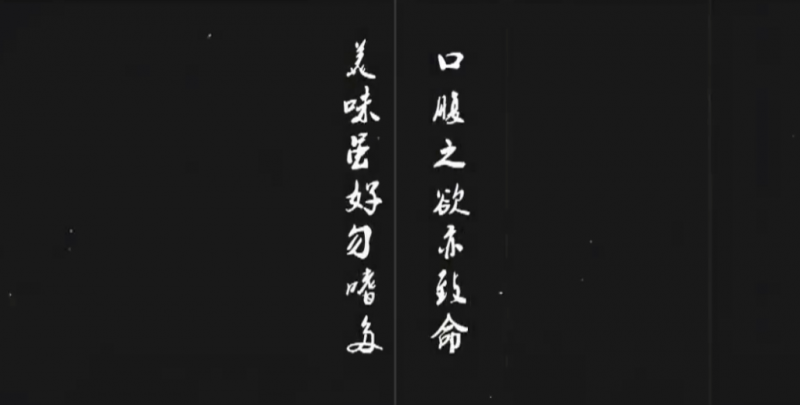 口腹之欲亦致命
美味虽好勿嗜多